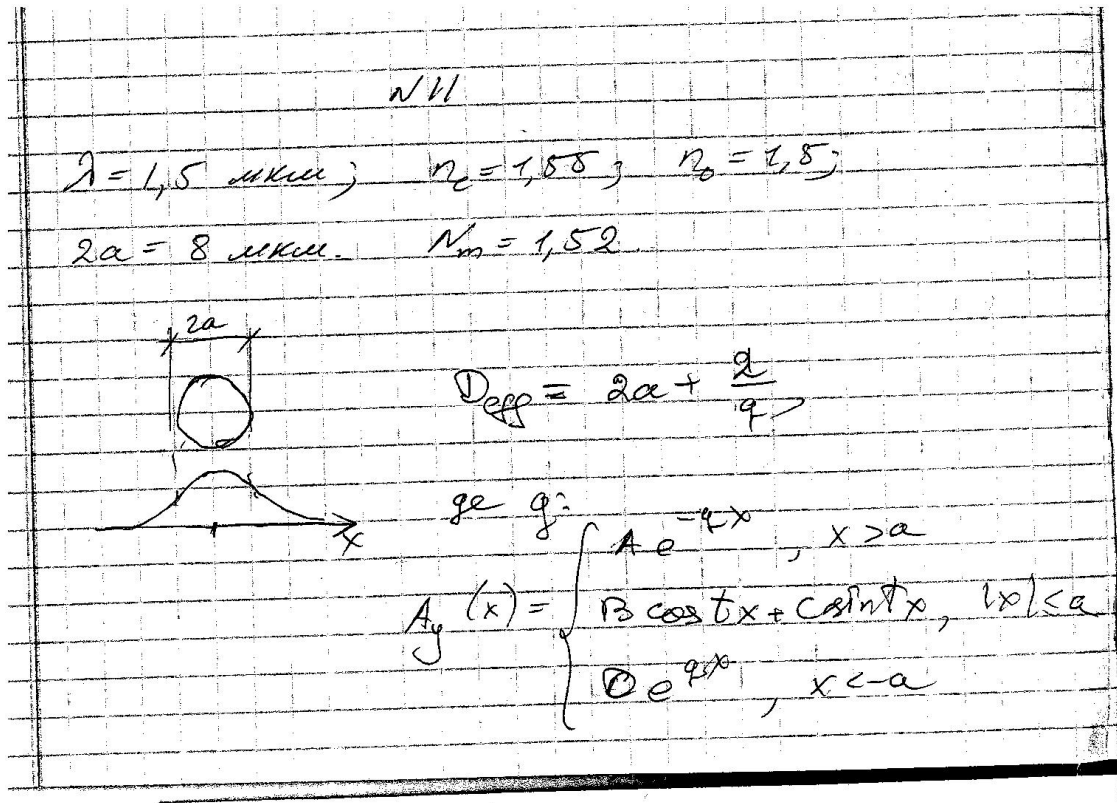 N11
λ = 1,5 мкм; n_c = 1,55; n_0 = 1,5;
2a = 8 мкм. N_m = 1,52
2a
D_eff = 2a + 2/q,
де q:
x
A e^{-qx}, x > a
A_y(x) = { B cos tx + C sin tx, |x| ≤ a
D e^{qx}, x < -a